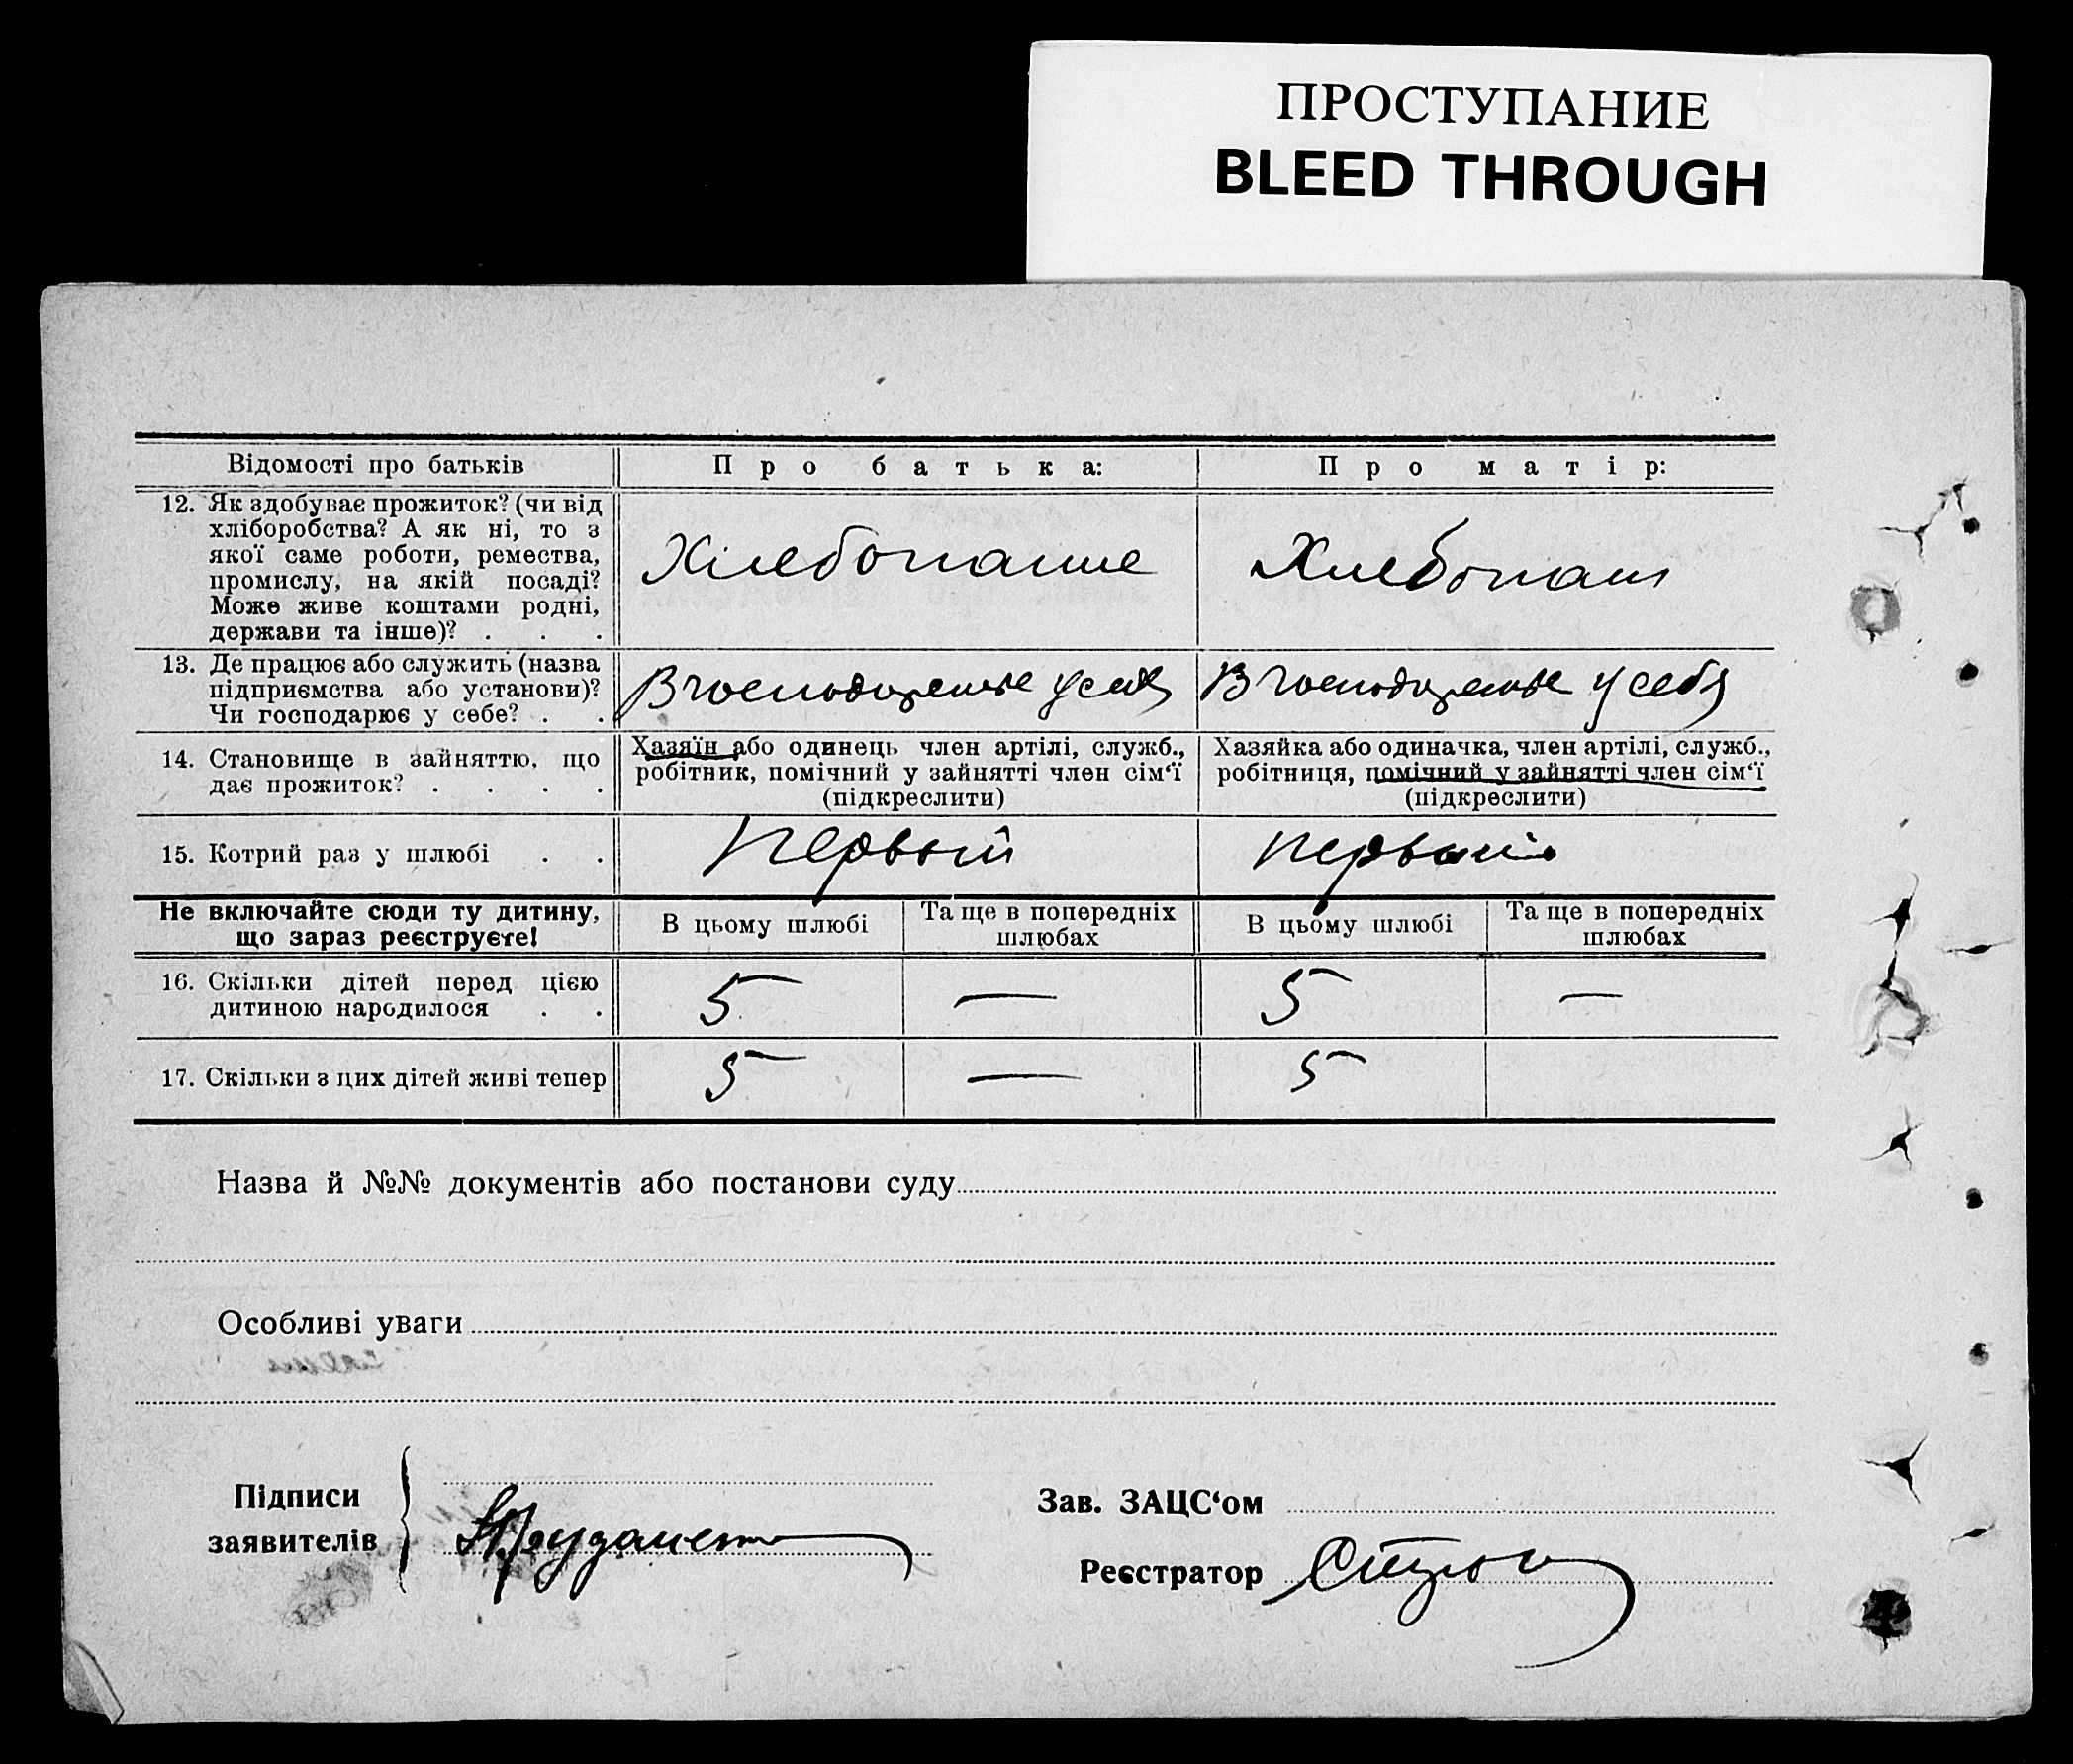 ПРОСТУПАНИЕ
BLEED THROUGH
Відомості про батьків
Про батька:
Про матір:
12. Як здобуває прожиток? (чи від
хліборобства? А як ні, то з
якої саме роботи, ремества,
промислу, на якій посаді?
Може живе коштами родні,
держави та інше)? . . .
Хлебопашие
Хлебопаш
13. Де працює або служить (назва
підприємства або установи)?
Чи господарює у себе? . .
В
у себя
В
у себя
14. Становище в зайняттю, що
дає прожиток? . . . .
Хазяїн або одинець член артілі, служб.,
робітник, помічний у зайнятті член сім‘ї
(підкреслити)
Хазяйка або одиначка, член артілі, служб.,
робітниця, помічний у зайнятті член сім‘ї
(підкреслити)
15. Котрий раз у шлюбі . .
Первый
первый
Не включайте сюди ту дитину,
що зараз реєструєте!
В цьому шлюбі
Та ще в попередніх
шлюбах
В цьому шлюбі
Та ще в попередніх
шлюбах
16. Скільки дітей перед цією
дитиною народилося . .
5
—
5
—
17. Скільки з цих дітей живі тепер
5
—
5
Назва й №№ документів або постанови суду
Особливі уваги
Підписи
заявителів
Зав. ЗАЦС‘ом
Реєстратор